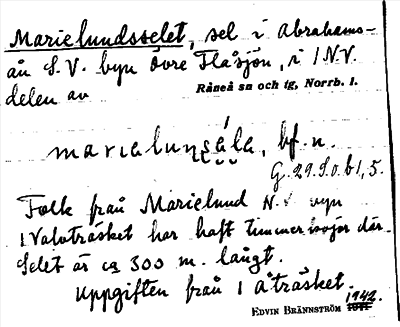 Marielundsselet, sel i Abrahams-
ån S.V. byn Övre Flåsjön, i N.V.
delen av
Råneå sn och tg, Norrb. l.
bf. n.
G. 29.S.o.b1,5.
Folk från Marielund N. byn
har haft timmerkojor där.
Selet är ca 300 m. långt.
Uppgiften från
1942.
EDVIN BRÄNNSTRÖM